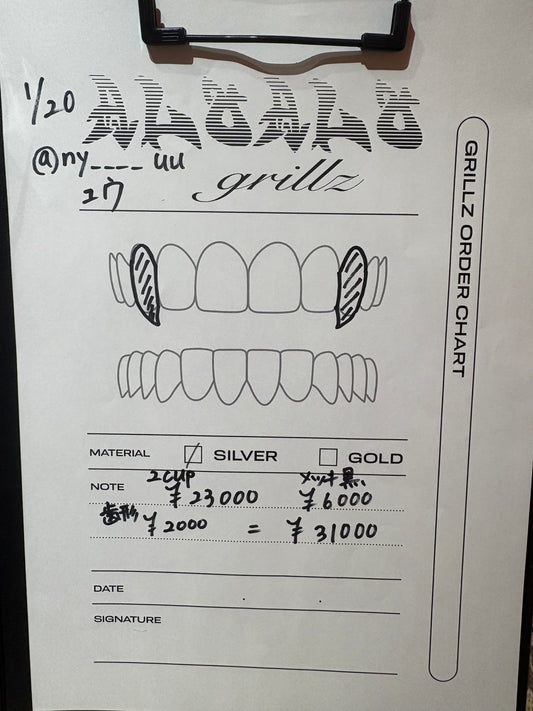 1/20
@ny____uu
grillz
GRILLZ ORDER CHART
MATERIAL SILVER GOLD
2cup
NOTE ¥23000 ¥6000
歯形 ¥2000 = ¥31000
DATE
SIGNATURE